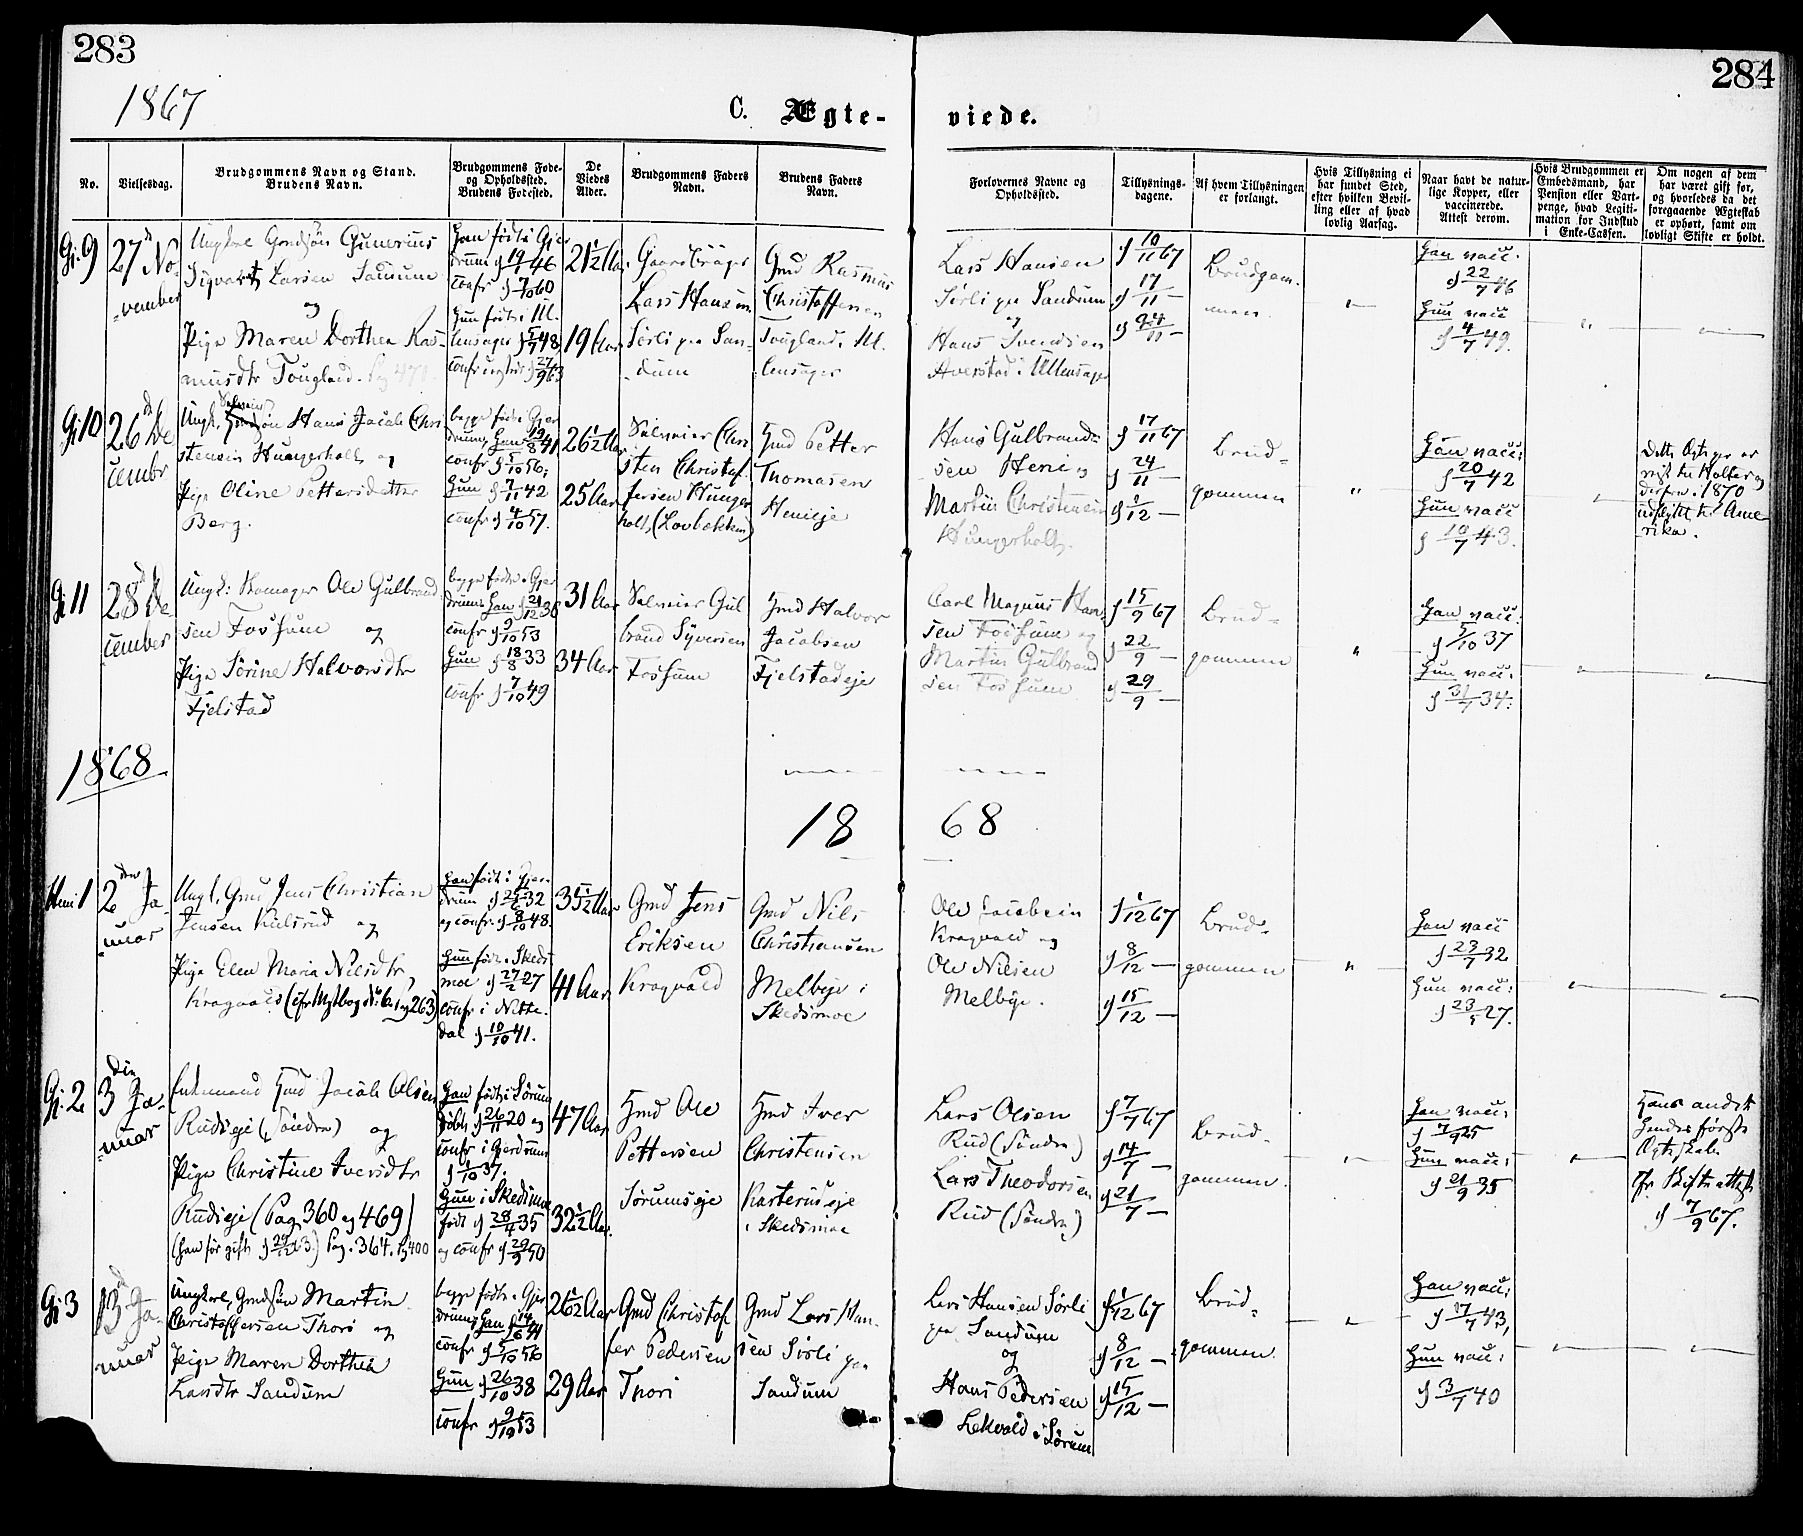 283
284
1867
C. Ægte-
viede.
No.
Vielsesdag.
Brudgommens Navn og Stand.
Brudens Navn.
Brudgommens Føde-
og Opholdssted.
Brudens Fødested.
De
Viedes
Alder.
Brudgommens Faders
Navn.
Brudens Faders
Navn.
Forlovernes Navne og
Opholdssted.
Tillysnings-
dagene.
Af hvem Tillysningen
er forlangt.
Hvis Tillysning ei
har fundet Sted,
efter hvilken Bevil-
ling eller af hvad
lovlig Aarsag.
Naar havt de natur-
lige Kopper, eller
vaccinerede.
Attest derom.
Hvis Brudgommen er
Embedsmand, har
Pension eller Vart-
penge, hvad Legiti-
mation for Indskud
i Enke-Cassen.
Om nogen af dem
har været gift før,
og hvorledes da det
foregaaende Ægteskab
er ophørt, samt om
lovligt Skifte er holdt.
Gj. 9
27 No-
vember
Ungkarl Gmdsøn Gunerius
Sigvart Larsen Sandum
og
Pige Maren Dorthea Ras-
musdtr Tougland. Pag 471
Han født i Gjer
drum d 19/1 46
Confr d 7/10 60
Hun født i Ul.
lensager d 5/7 48,
19 Aar
Gaardbruger
Lars Hansen
Sørli pr San-
dum
Gmd Rasmus
Christoffersen
Tougland. Ul.
lensager
Lars Hansen
Sørli pr Sandum
og
Hans Svendsen
Averstad i Ullensager
d 10/11 67
d 17/11 —
d 24/11 —
Brudgom-
men
Han vacc.
d 22/7 46
Hun vacc
d 4/7 49.
Gj 10
26 De
cembr
Hans Jacob Chri
stensen Hungerholt og
Pige Oline Pettersdatter
Berg.
begge fødte i Gjer
drum, Han 19/8 41
confr d 5/10 56;
Hun d 7/11 42
confr d 4/10 57.
26 1/2 Aar
25 Aar
Selveier Chri
sten Christof.
fersen Hunger
holt, (Lovbakken)
Hmd Petter
Thomasen
Henieje
Hans Gulbrand-
sen Heni og
Martin Christensen
Hungerholt.
d 17/11 67
d 24/11 —
d 1/12 —
Brud-
gommen
Han vacc:
d 20/7 42
Hun vacc
d 10/7 43.
Dette Ægtepar er
reist til Holter og
derfra i 1870
udflyttet til Ame
rika.
Gj 11
28 De
cember
Ungk: Ole Gulbrand
sen Fosshum og
Pige Sørine Halvorsdtr
Fjelstad
begge fødte i Gjer
drum Han d 21/12 36
confr d 9/10 53
Hun d 18/8 33
confr d 7/10 49
31 Aar
34 Aar
Selveier Gul
brand Syversen
Fosshum
Hmd Halvor
Jacobsen
Fjelstadeje
Carl Magnus Han
sen Fosshum og
Martin Gulbrand
sen Fosshum
d 15/9 67
d 22/9 —
d 29/9 —
Brud-
gommen
Han vacc:
d 5/10 37
Hun vacc:
d 31/7 34:
1868
18
68
Heni 1
2 den Ja-
nuar
Ungk, Gmd Jens Christian
Jensen Kulsrud og
Pige Elen Maria Nilsdtr
Han født i Gjer-
drum d 25/6 32
og confr. d 8/10 48.
Hun født i Skeds
moe d 27/2 27
confr i Nitte-
dal d 10/10 41.
35 1/2 Aar
41 Aar
Gmd Jens
Eriksen
Kragvald
Gmd Nils
Christiansen
Melbye i
Skedsmoe
Ole Jacobsen
Kragvald og
Ole Nilsen
Melbye.
d 1/12 67
d 8/12 —
d 15/12 —
Brud-
gommen
Han vacc
d 23/7 32
Hun vacc:
d 23/5 27.
Gj. 2
3 die Ja-
nuar
Enkemand Hmd Jacob Olsen
Rudseje (Søndre) og
Pige Christine Iversdtr
Rudseje (Pag. 360 og 469)
Pag. 364. Pg 400
Han født i Sørum
døbt d 26/11 20 og
confr i Gjerdrum
d 1/10 37.
Hun i Skedsmoe
født d 28/4 35
og confr d 29/9 50
47 Aar
32 1/2 Aar.
Hmd Ole
Pettersen
Sørumseje
Hmd Iver
Christensen
i Skedsmoe
Lars Olsen
Rud (Søndre)
Lars Theodorsen
Rud (Søndre)
d 7/7 67
d 14/7 —
d 21/7 —
Brud-
gommen.
Han vacc:
d 7/9 25
Hun vacc:
d 21/9 35
Hans andet
Hendes første
Ægteskab.
Cfr. Skifteattest
d 7/9 67.
Gj 3
13 d Ja-
nuar
Ungkarl, Gmdsøn Martin
Christoffersen Thori og
Pige Maren Dorthea
Larsdtr Sandum
begge fødte i Gjer
drum, Han d 14/6 41
confr d 5/10 56
Hun d 26/10 38
confr d 9/10 53
26 1/2 Aar
29 Aar
Gmd Christof
fer Pedersen
Thori
Gmd Lars Han-
sen Sørli pr
Sandum
Lars Hansen Sørli
pr Sandum
og
Hans Pedersen
Lekvold i Sørum
d 1/12 67
d 8/12 —
d 15/12 —
Brud-
gommen.
Han vacc:
d 17/7 43,
Hun vacc:
d 3/7 40